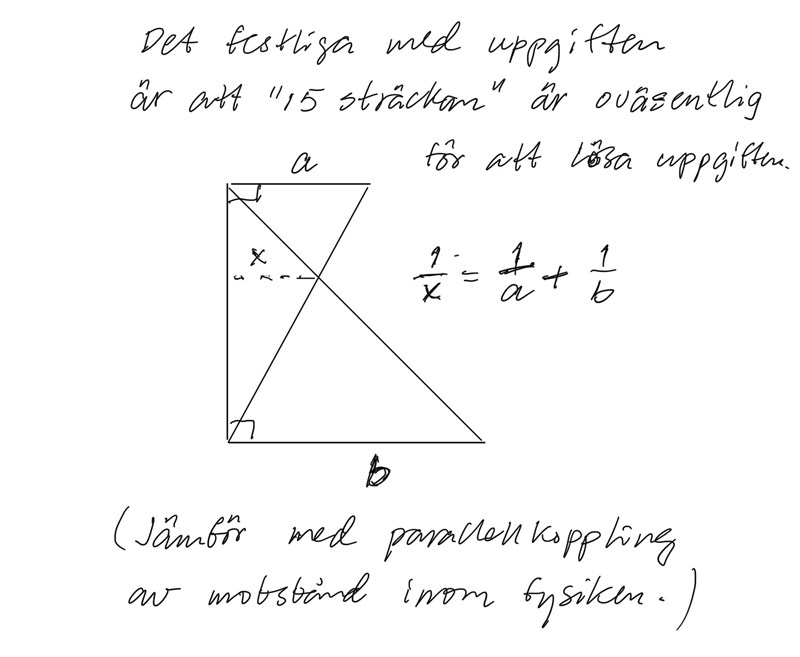 Det festliga med uppgiften
är att "15 sträckan" är oväsentlig
för att lösa uppgiften.
a
x
1/x = 1/a + 1/b
b
(Jämför med parallellkoppling
av motstånd inom fysiken.)